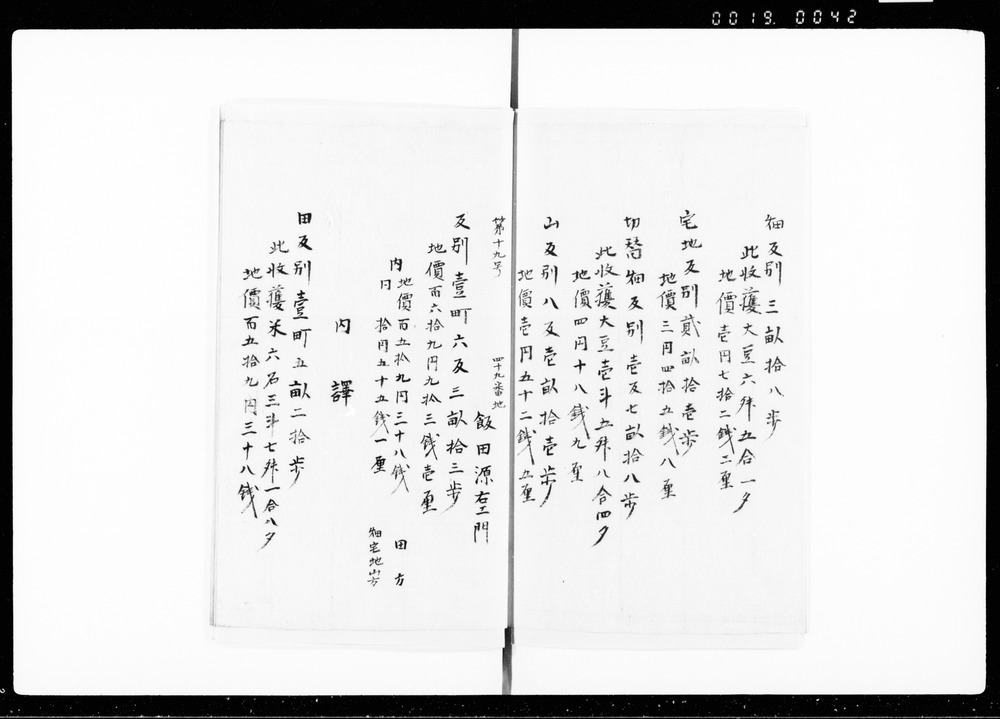 0019. 0042
畑反別三畝拾八歩
此收穫大豆六舛五合一夕
地價壱円七拾二銭二厘
宅地反別貳畝拾壱歩
地價三円四拾五銭八厘
切替畑反別壱反七畝拾八歩
此收穫大豆壱斗五舛八合四夕
地價四円十八銭九厘
山反別八反壱畝拾壱歩
地價壱円五十二銭五厘
第十九号 四十九番地
飯田源右エ門
反別壹町六反三畝拾三歩
地價百六拾九円九拾三銭壱厘
内 地價百五拾九円三十八銭 田方
円 拾円五十五銭一厘 畑宅地山方
内譯
田反別壹町五畝二拾歩
此收穫米六石三斗七舛一合八夕
地價百五拾九円三十八銭